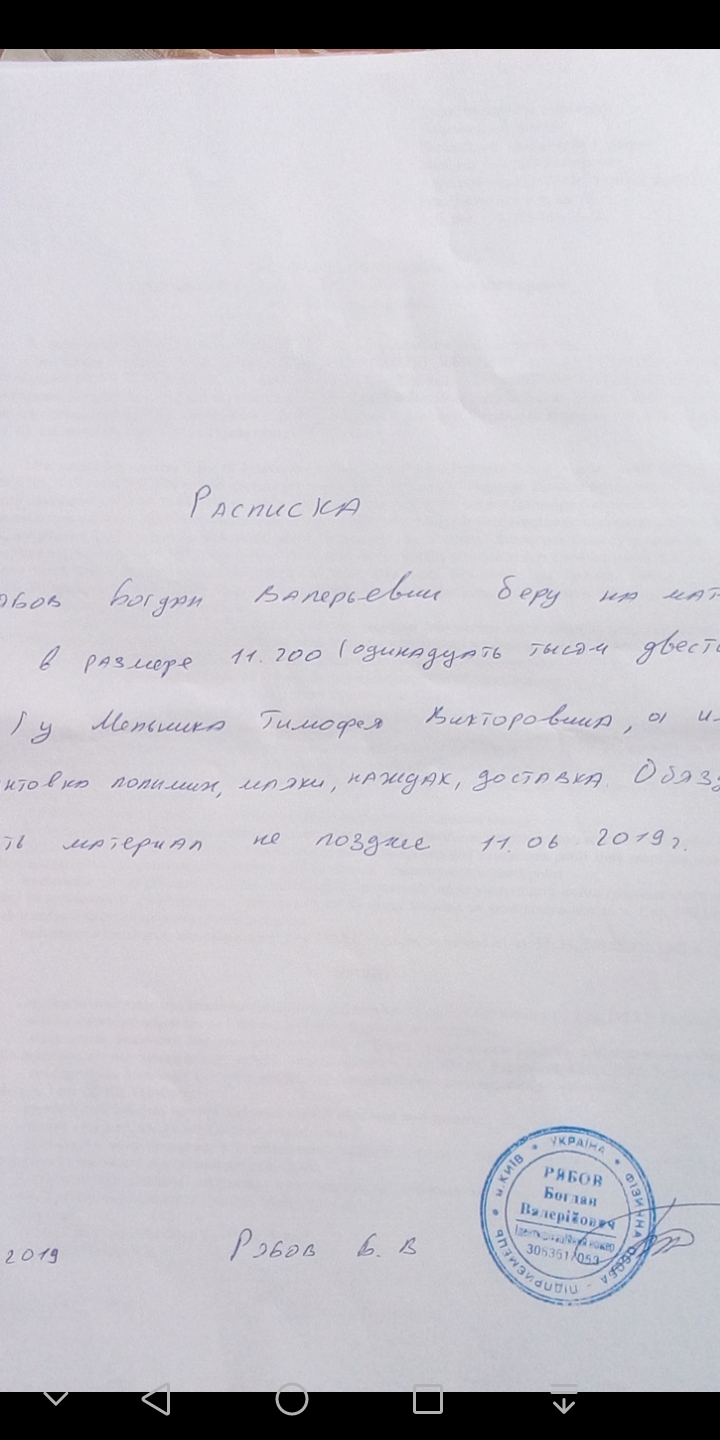 Расписка
ябов Богдан Валерьевич беру на мат
в размере 11.200 (одинадцать тысяч двести
) у Мельника Тимофея Викторовича, а и
нтовка полимих, маяки, наждак, доставка. Обяз
ть материал не позднее 11.06.2019г.
2019 Рябов Б. В
УКРАЇНА * ФІЗИЧНА ОСОБА - ПІДПРИЄМЕЦЬ * м.КИЇВ *
РЯБОВ
Богдан
Валерійович
Ідентифікаційний номер